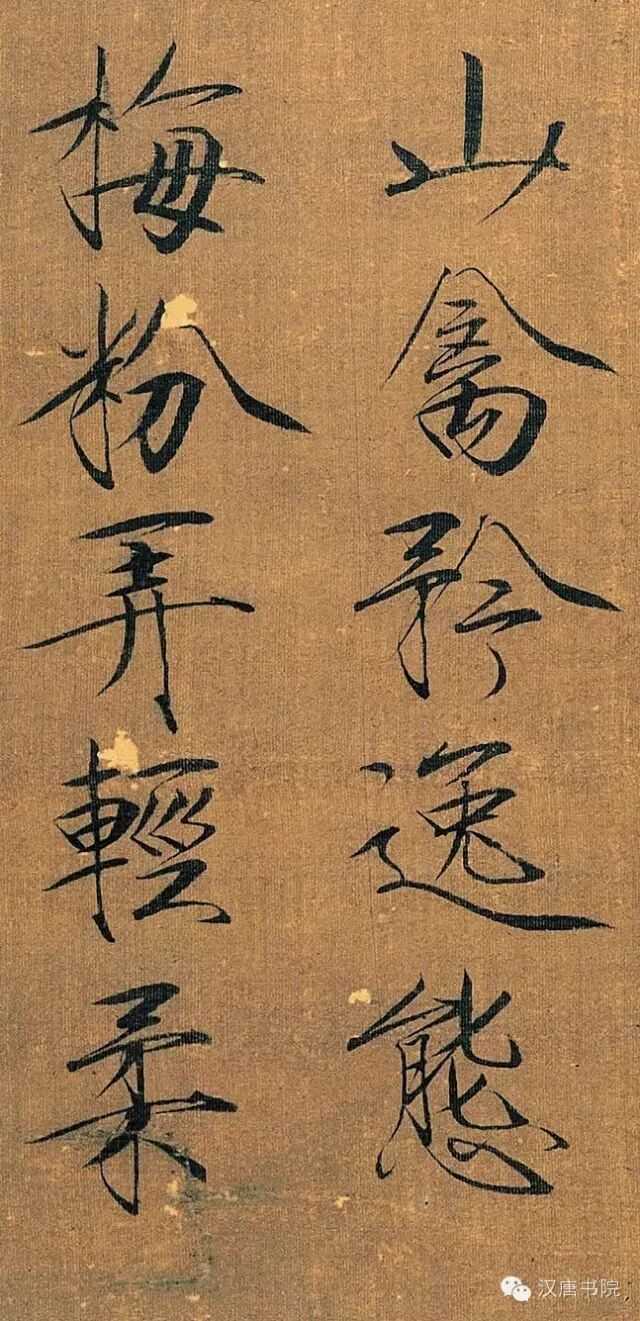 山禽矜逸態
梅粉弄輕柔
汉唐书院